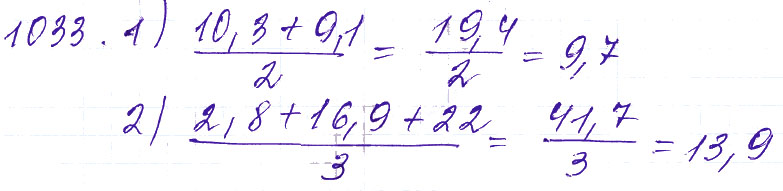 1033. 1) (10,3+9,1)/2 = 19,4/2 = 9,7
2) (2,8+16,9+22)/3 = 41,7/3 = 13,9